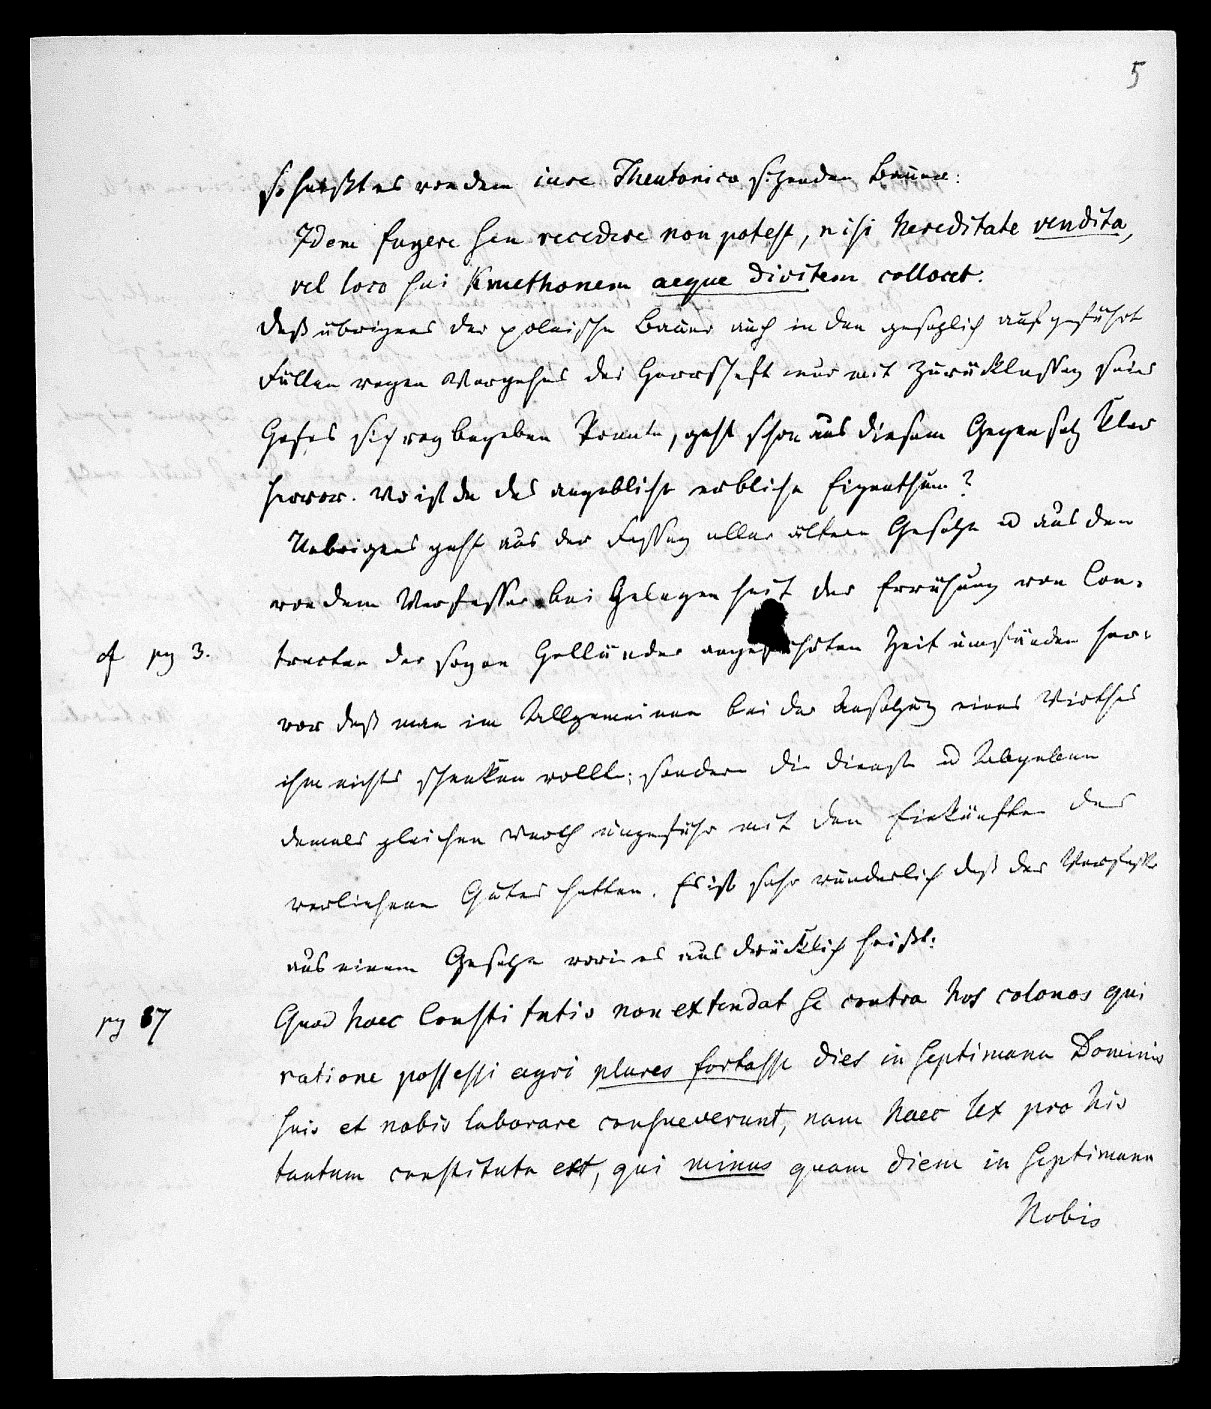 5
so heißt es von dem iure Theutonico sitzenden Bauer:
Idem fugere seu recedere non potest, nisi hereditate vendita,
vel loco sui Kmethonem aeque divitem collocet.
Daß übrigens der polnische Bauer auch in den gesetzlich aufgeführt
Fällen wegen Vergehens der Herrschaft nur mit Zurücklassung seines
Hofes sich wegbegeben konnte, geht schon aus diesem Gegensatz klar
hervor. Wo ist da das angebliche erbliche Eigenthum?
Uebrigens geht aus der Fassung aller ältern Gesetze u aus den
von dem Verfasser bei Gelegenheit der Erwähnung von Con-
cf pg 3. tracten der sogen Holländer angeführten Zeitumständen her-
vor daß man im Allgemeinen bei der Ansetzung eines Wirthes
ihm nichts schenken wollte; sondern die Dienste u Abgaben
damals gleichen Werth ungefähr mit den Einkünften des
verliehenen Gutes hatten. Es ist sehr wunderlich daß der Verfasser
aus einem Gesetze worin es ausdrücklich heißt:
pg 87 Quod haec Constitutio non extendat se contra hos colonos qui
ratione possessi agri plures fortasse dies in septimana Dominis
suis et nobis laborare consueverunt, nam haec lex pro his
tantum constituta est, qui minus quam diem in septimana
Nobis